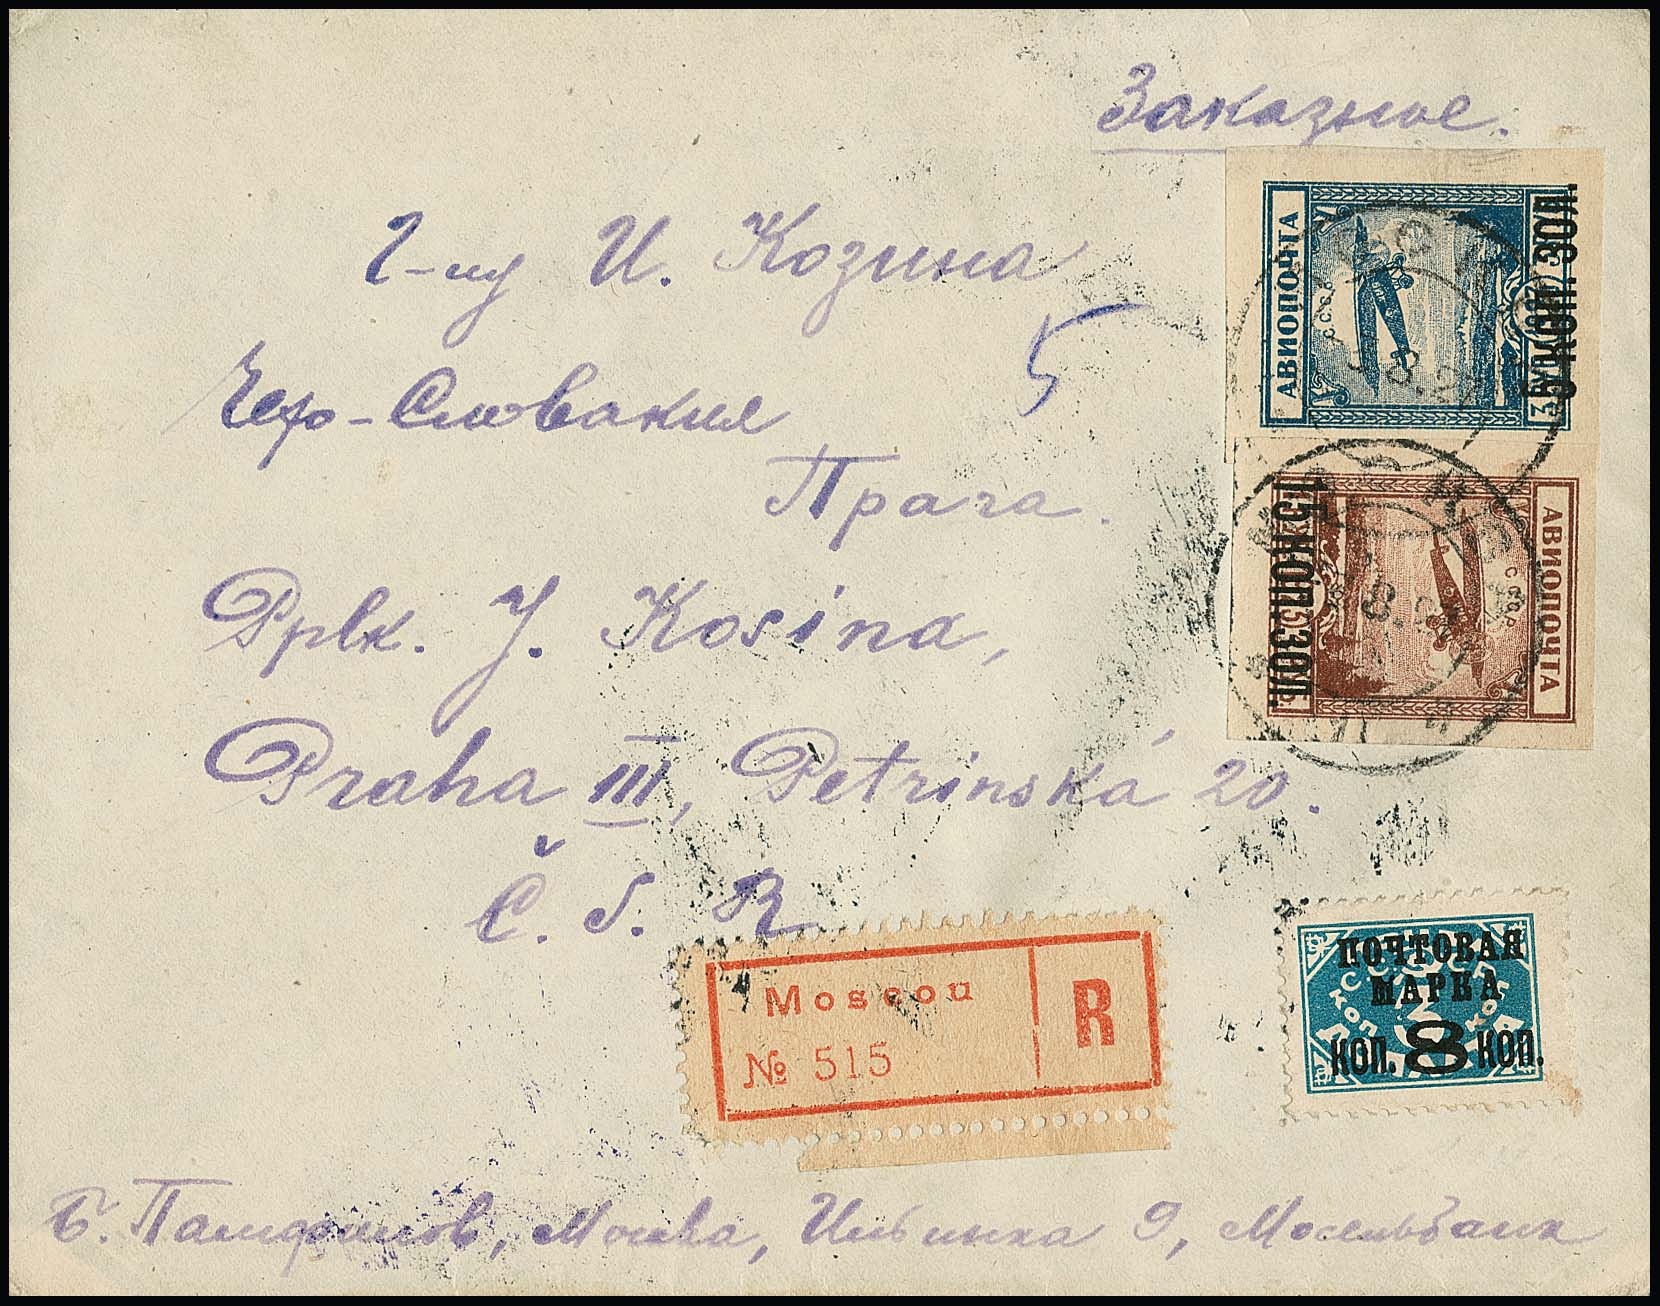 Заказное.
г-ну И. Козина
Чехо-Словакия
Прага.
Pplk. J. Kosina,
Praha III, Petrinská 20.
Č. S. R.
АВИОПОЧТА
С.С.С.Р.
5 КОП. ЗОЛ.
3
АВИОПОЧТА
С.С.С.Р.
15 КОП. ЗОЛ.
Moscou
№ 515
R
ПОЧТОВАЯ
МАРКА
КОП. 8 КОП.
Б. Памфилов, Москва, Ильинка 9, Мосельбанк